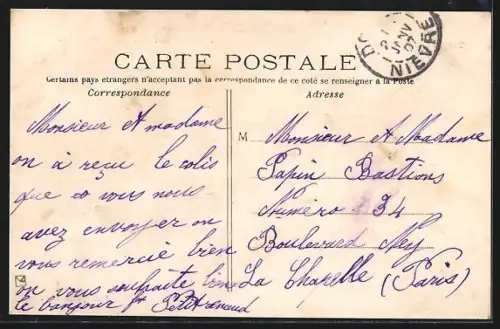 CARTE POSTALE
Certains pays étrangers n'acceptant pas la correspondance de ce coté se renseigner à la Poste
Correspondance
Monsieur et madame
on à reçu le colis
que vous nous
avez envoyer on
vous remercie bien
on vous souhaite bien
le bonjour
Adresse
M Monsieur et Madame
Papin Bastions
Numéro 34
Boulevard Ney
La Chapelle (Paris)
NIEVRE